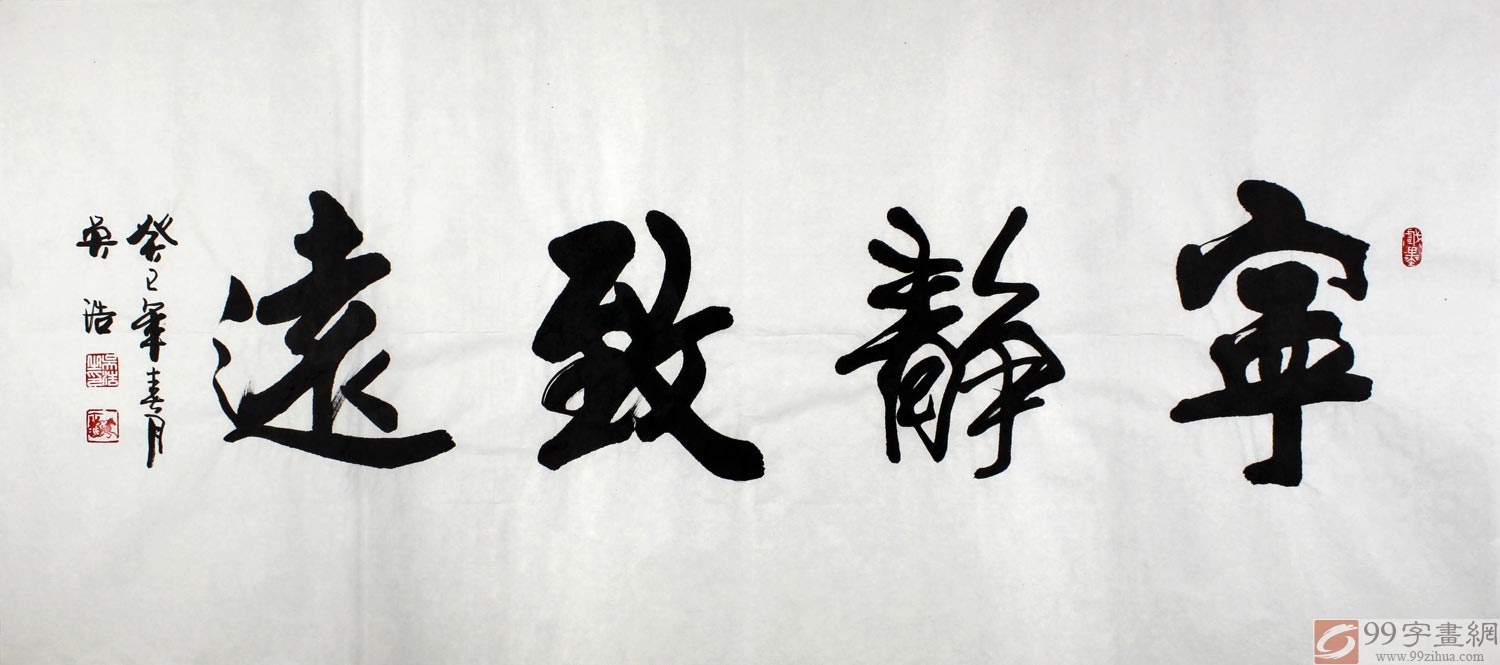 寧靜致遠
癸巳年春月
吳浩
99字畫網
www.99zihua.com